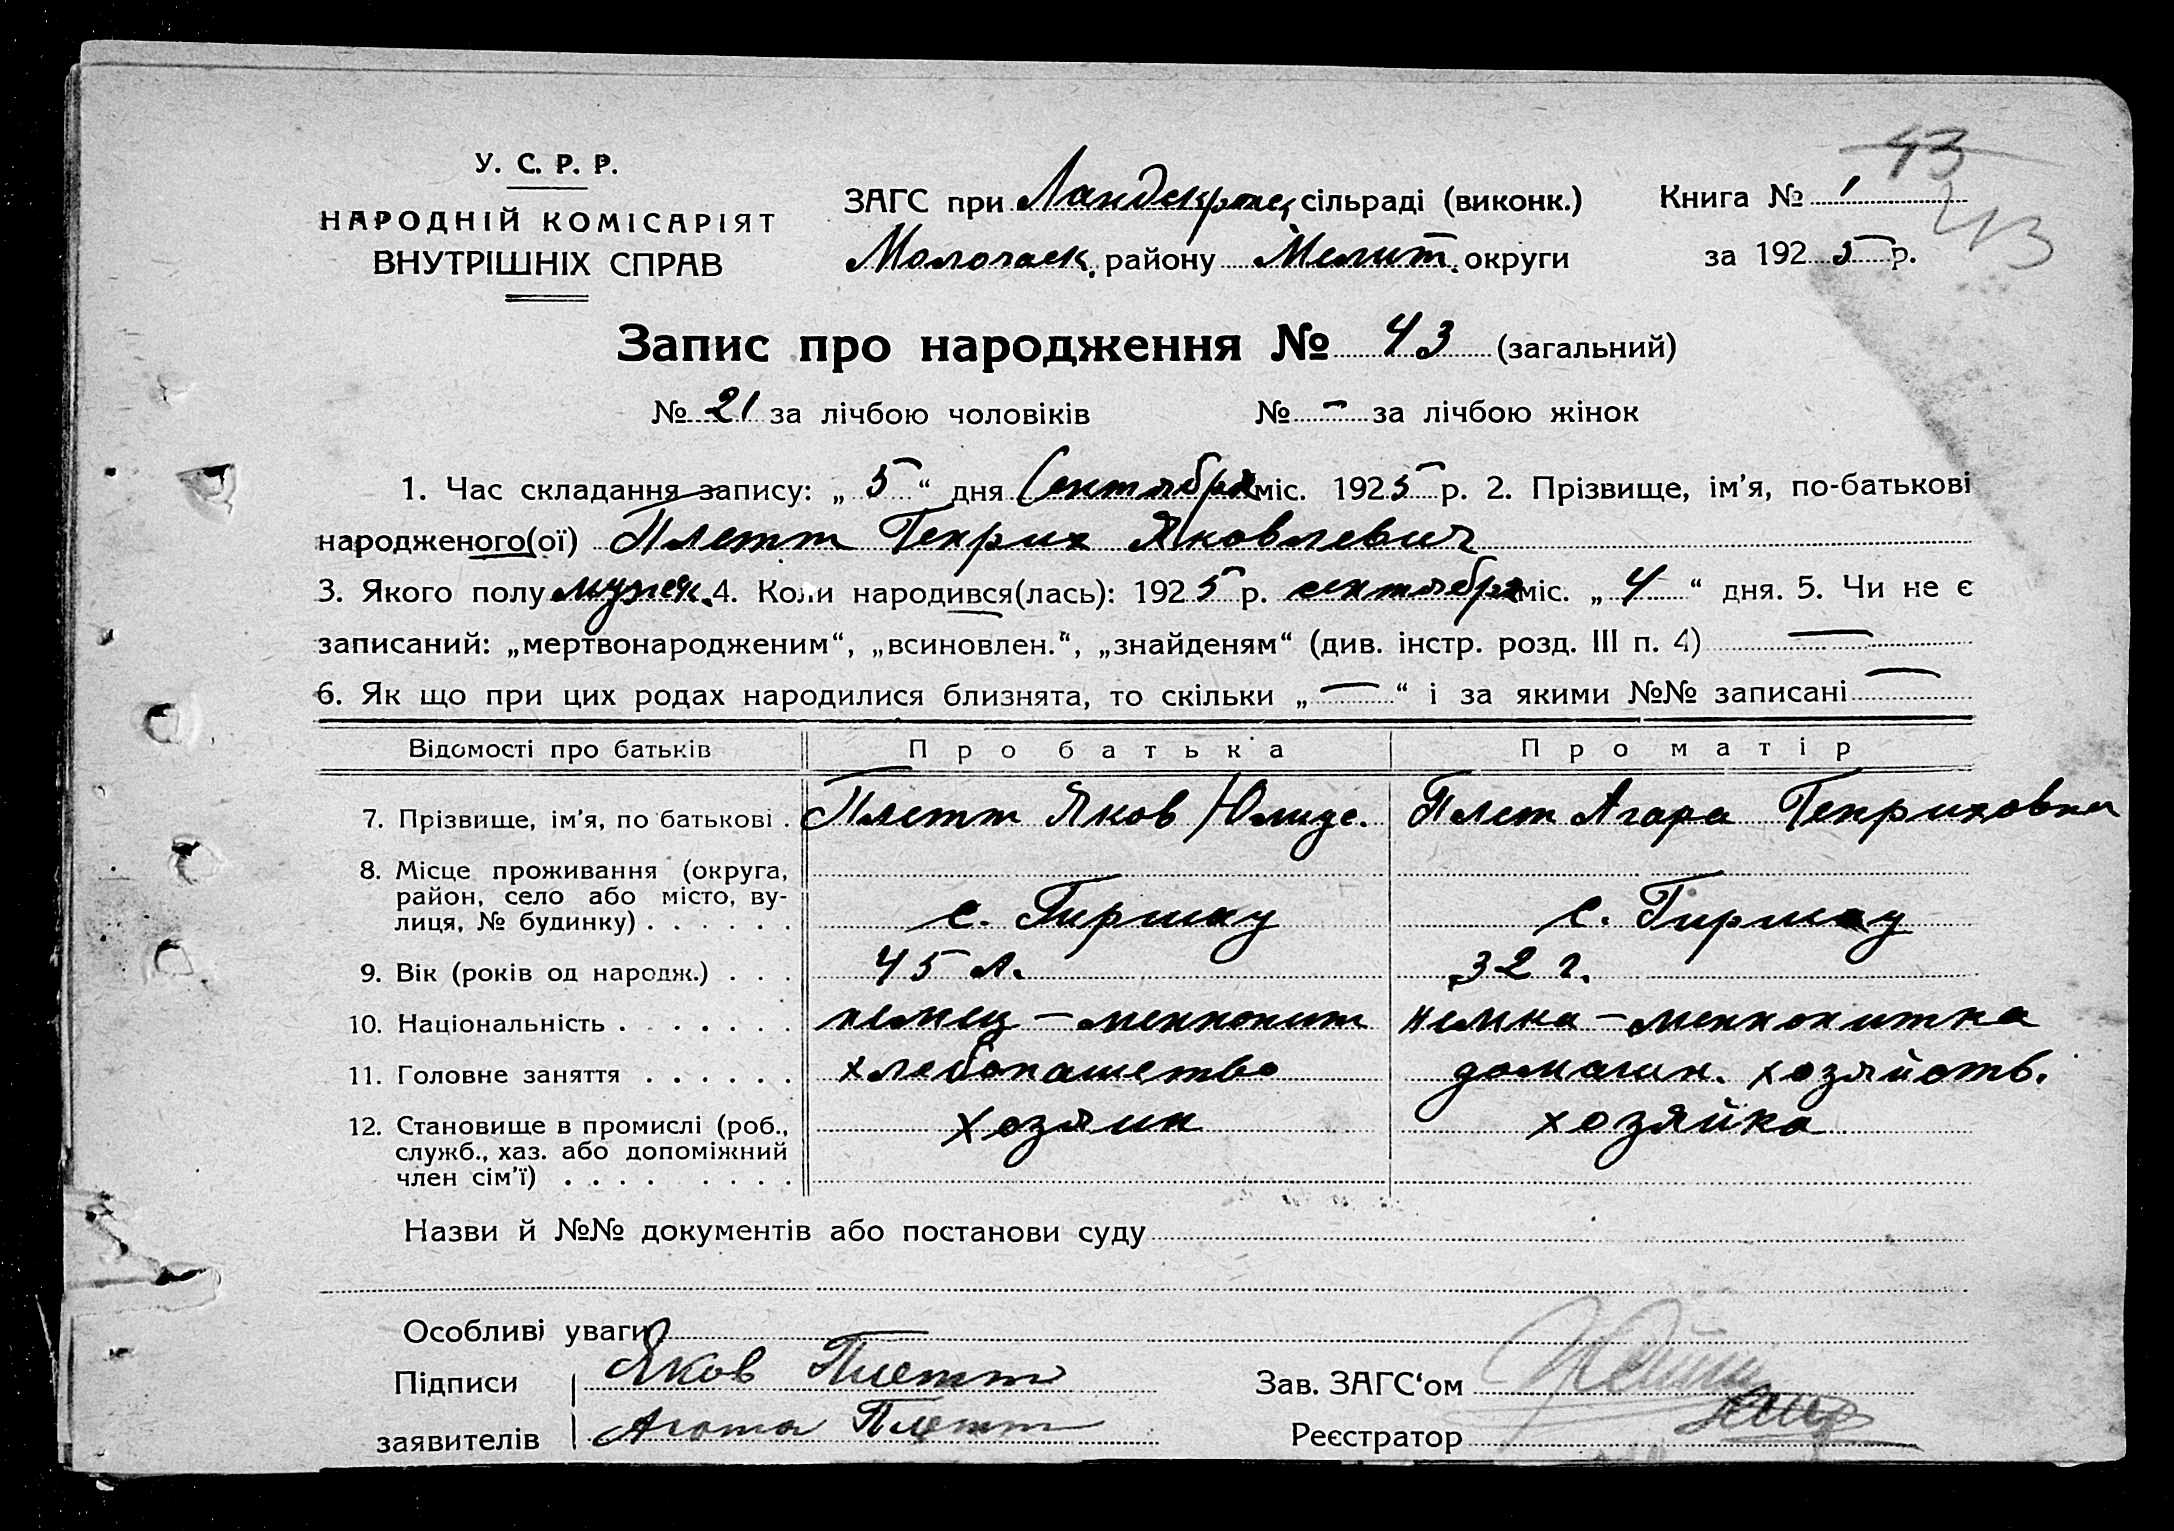 43
У. С. Р. Р.
НАРОДНІЙ КОМІСАРІЯТ
ВНУТРІШНІХ СПРАВ
ЗАГС при Ландскронск сільраді (виконк.)
Молочанск. району Мелит. округи
Книга № 1
43
за 1925 р.
Запис про народження № 43 (загальний)
№ 21 за лічбою чоловіків № – за лічбою жінок
1. Час складання запису: „ 5 “ дня Сентября міс. 1925 р. 2. Прізвище, ім'я, по-батькові
народженого(ої) Плетт Генрих Яковлевич
3. Якого полу мужск. 4. Коли народився(лась): 1925 р. сентября міс. „ 4 “ дня. 5. Чи не є
записаний: „мертвонародженим“, „всиновлен.“, „знайденям“ (див. інстр. розд. III п. 4) —
6. Як що при цих родах народилися близнята, то скільки „ — “ і за якими №№ записані —
Відомості про батьків Про батька Про матір
7. Прізвище, ім'я, по батькові . Плетт Яков Плет Агата Генриховна
8. Місце проживання (округа,
район, село або місто, ву-
лиця, № будинку) . . . . . . с. Гиршау с. Гиршау
9. Вік (років од народж.) . . . 45 л. 32 г.
10. Національність . . . . . . . немец – меннонит немка – меннонитка
11. Головне заняття . . . . . . хлебопашество домашн. хозяйств.
12. Становище в промислі (роб.,
служб., хаз. або допоміжний
член сім'ї) . . . . . . . . хозяин хозяйка
Назви й №№ документів або постанови суду
Особливі уваги
Підписи Яков Плетт
заявителів Агата Плетт
Зав. ЗАГС‘ом
Реєстратор